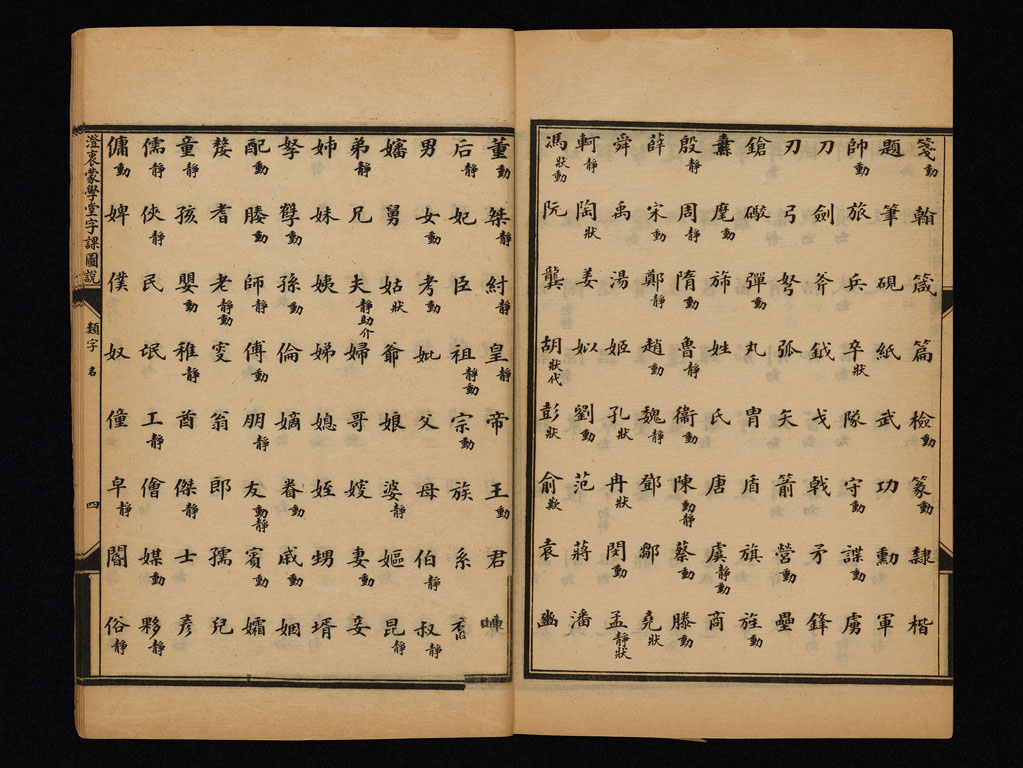 箋動 翰 箴 篇 檢動 篆動 隸 楷
題 筆 硯 紙 武 功 勳 軍
帥動 旅 兵 卒狀 隊 守動 諜動 虜
刀 劍 斧 鉞 戈 戟 矛 鋒
刃 弓 弩 弧 矢 箭 營動 壘
鎗 礮 彈動 丸 冑 盾 旗 旌動
纛 麾動 旆 姓 氏 唐 虞靜動 商
殷靜 周靜 隋動 魯靜 衞動 陳動靜 蔡動 滕動
薛 宋動 鄭靜 趙動 魏靜 鄧 鄒 堯狀
舜 禹 湯 姬 孔狀 冉狀 閔動 孟靜狀
軒靜 陶狀 姜 姒 劉動 范 蔣 潘
馮狀動 阮 龔 胡狀代 彭狀 俞歎 袁
董動 桀靜 紂靜 皇靜 帝 王動 君
后靜 妃 臣 祖靜動 宗動 族 系
男 女動 考動 妣 父 母 伯靜 叔靜
嬸 舅 姑狀 爺 娘 婆靜 嫗 昆靜
弟靜 兄 夫靜助介 婦 哥 嫂 妻動 妾
姉 妹 姨 娣 媳 姪 甥 壻
孥 孽動 孫動 倫 嫡 眷動 戚動 姻
配動 媵動 師靜 傅動 朋靜 友動靜 賓動 孀
嫠 耆 老靜動 叟 翁 郎 孺 兒
童靜 孩 嬰動 稚靜 酋 傑靜 士 彥
儒靜 俠靜 民 氓 工靜 儈 媒動 夥靜
傭動 婢 僕 奴 僮 皁靜 閽 俗靜
澄衷蒙學堂字課圖說 類字 名 四